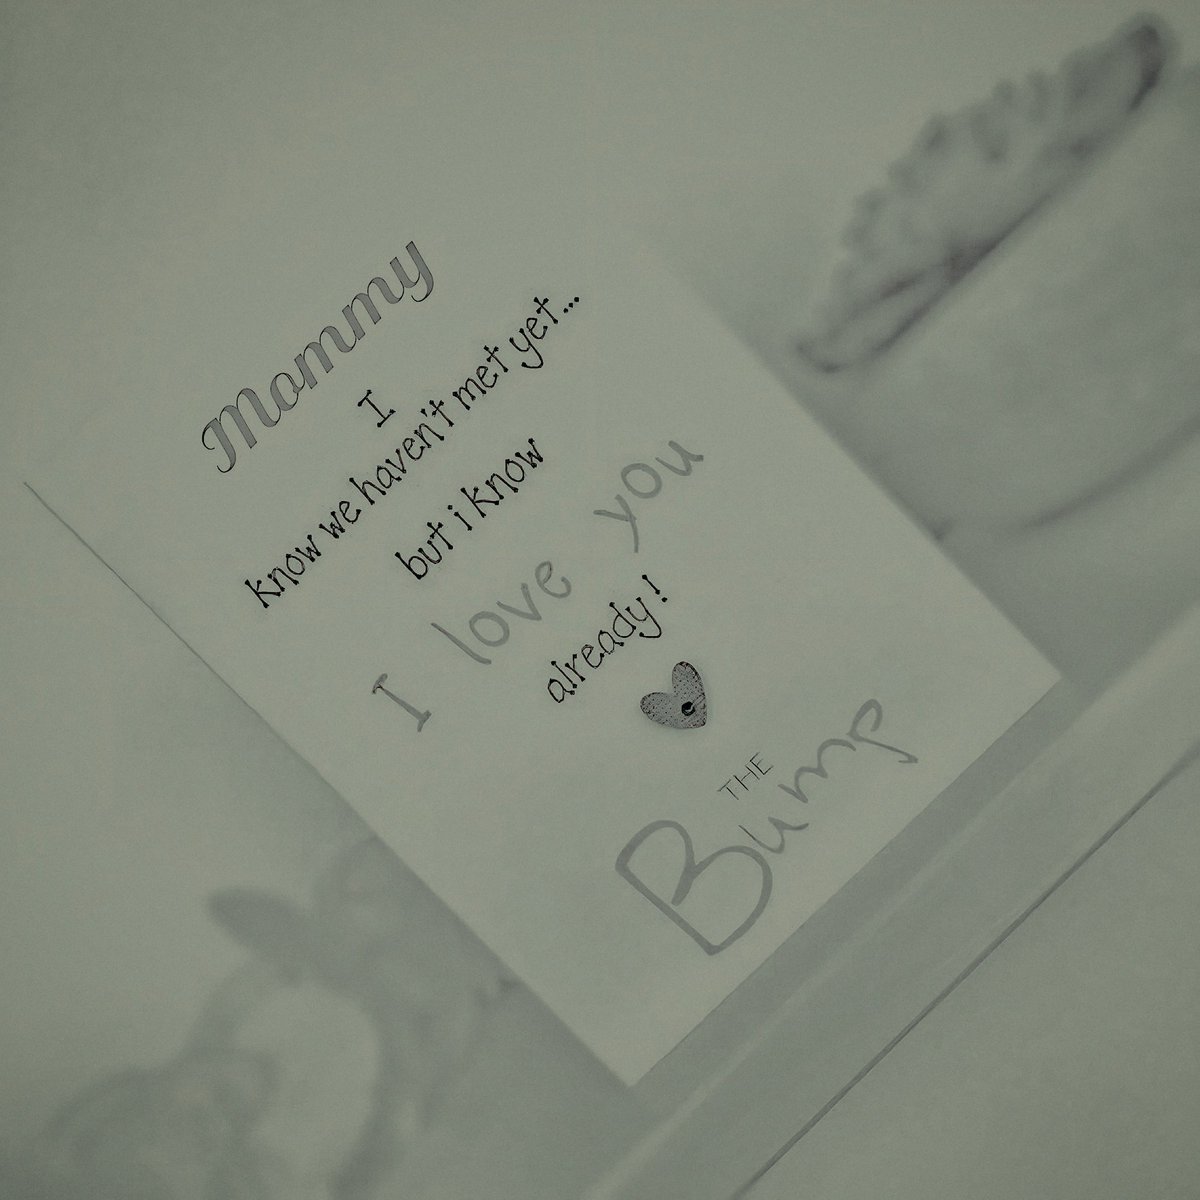 Mommy
I
know we haven't met yet...
but i know
I love you
already!
THE
Bump